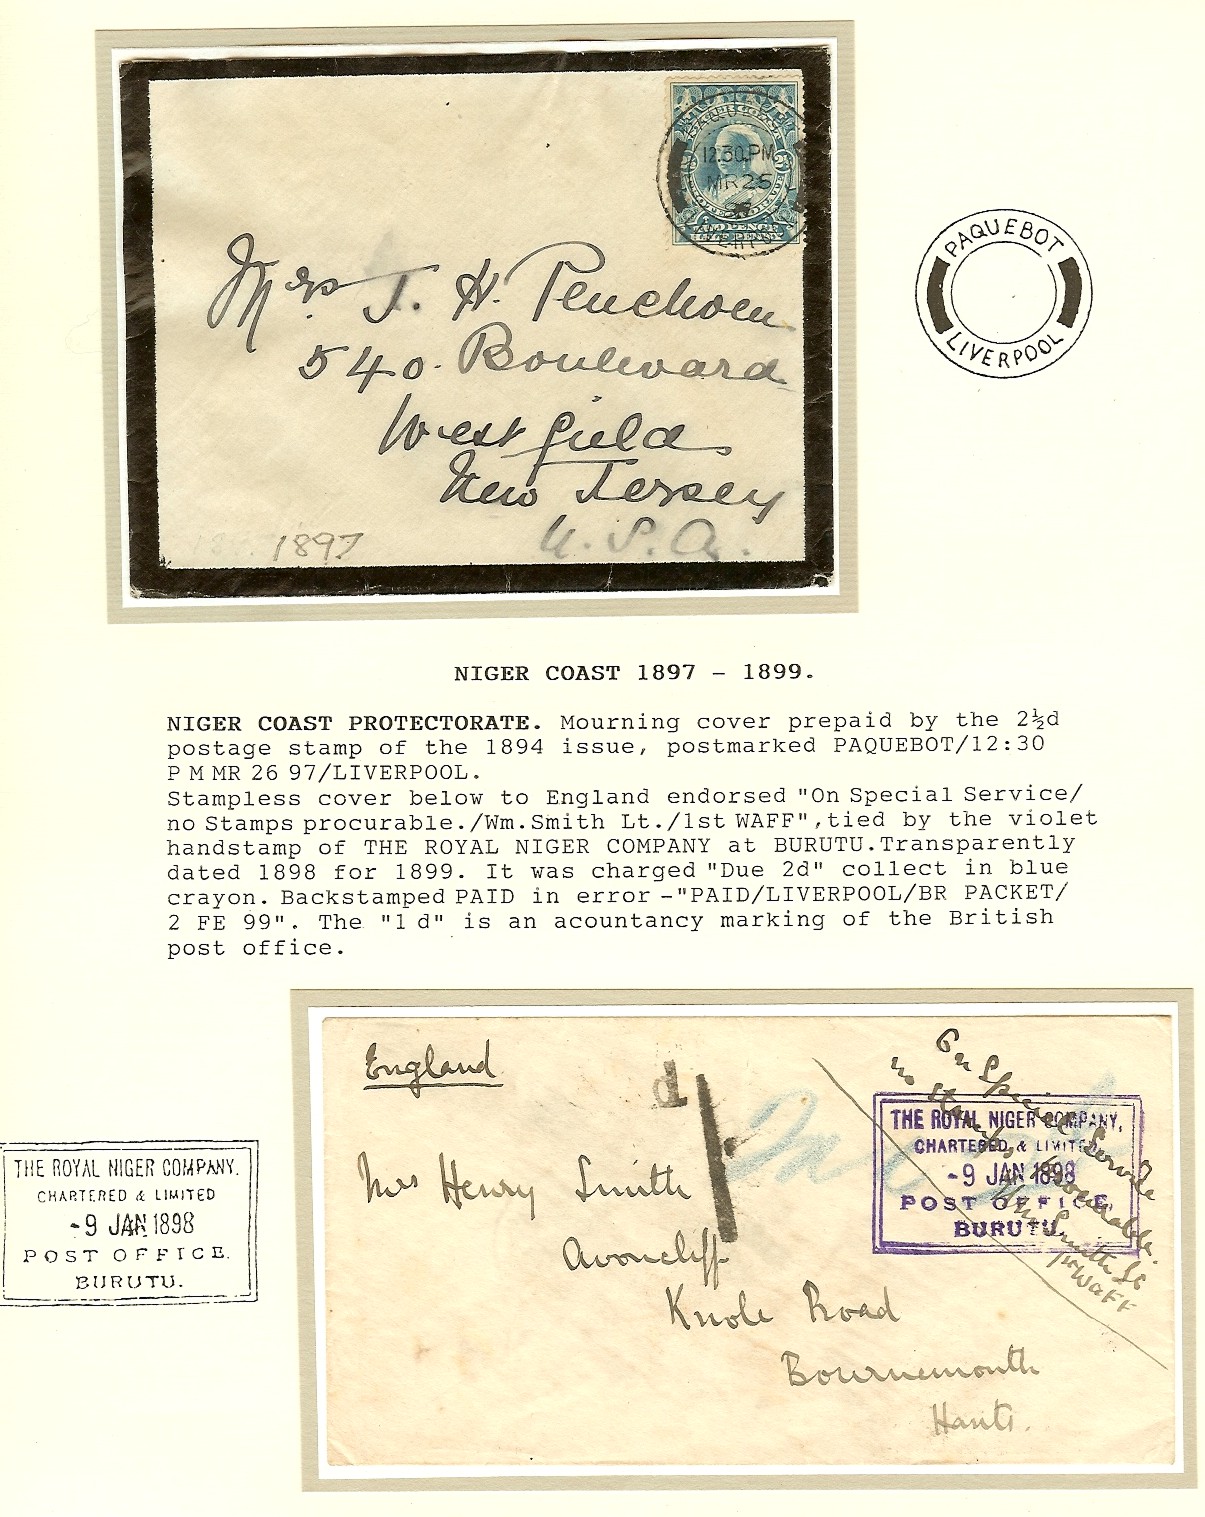 12.30.PM
MR 26
Mrs. J. H.
540. Boulevard
Westfield
New Jersey
U. S. A.
1897
PAQUEBOT
LIVERPOOL
NIGER COAST 1897 - 1899.
NIGER COAST PROTECTORATE. Mourning cover prepaid by the 2½d
postage stamp of the 1894 issue, postmarked PAQUEBOT/12:30
P M MR 26 97/LIVERPOOL.
Stampless cover below to England endorsed "On Special Service/
no Stamps procurable./Wm.Smith Lt./1st WAFF",tied by the violet
handstamp of THE ROYAL NIGER COMPANY at BURUTU.Transparently
dated 1898 for 1899. It was charged "Due 2d" collect in blue
crayon. Backstamped PAID in error -"PAID/LIVERPOOL/BR PACKET/
2 FE 99". The "1 d" is an acountancy marking of the British
post office.
England
1 d
On Special Service
no Stamps procurable.
Wm. Smith Lt
1st WAFF
THE ROYAL NIGER COMPANY,
CHARTERED & LIMITED
-9 JAN 1898
POST OFFICE,
BURUTU.
Mrs Henry Smith
Avoncliff
Knole Road
Bournemouth
Hants.
THE ROYAL NIGER COMPANY.
CHARTERED & LIMITED
-9 JAN 1898
POST OFFICE.
BURUTU.